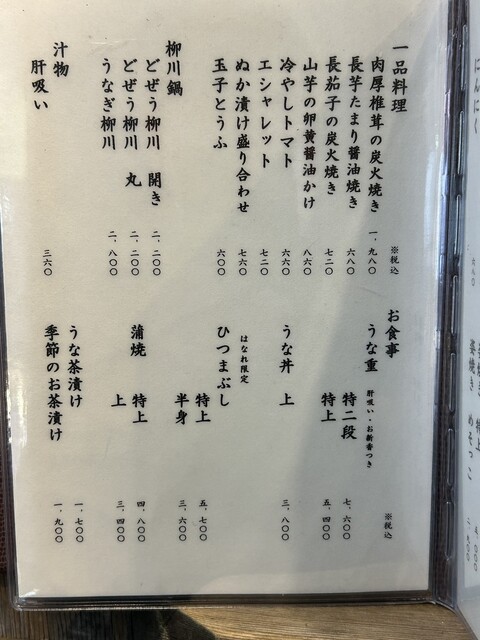 一品料理
※税込
肉厚椎茸の炭火焼き 一、九八〇
長芋たまり醤油焼き 六八〇
長茄子の炭火焼き 七二〇
山芋の卵黄醤油かけ 八六〇
冷やしトマト 六六〇
エシャレット 七二〇
ぬか漬け盛り合わせ 七六〇
玉子とうふ 六〇〇
柳川鍋
どぜう柳川 開き 二、二〇〇
どぜう柳川 丸 二、二〇〇
うなぎ柳川 二、八〇〇
汁物
肝吸い 三六〇
お食事
※税込
うな重 肝吸い・お新香つき
特二段 七、六〇〇
特上 五、四〇〇
うな丼 上 三、八〇〇
はなれ限定
ひつまぶし
特上 五、七〇〇
半身 三、六〇〇
蒲焼 特上 四、八〇〇
上 三、四〇〇
うな茶漬け 一、七〇〇
季節のお茶漬け 一、九〇〇
にんにく
特上
姿焼き めそっこ